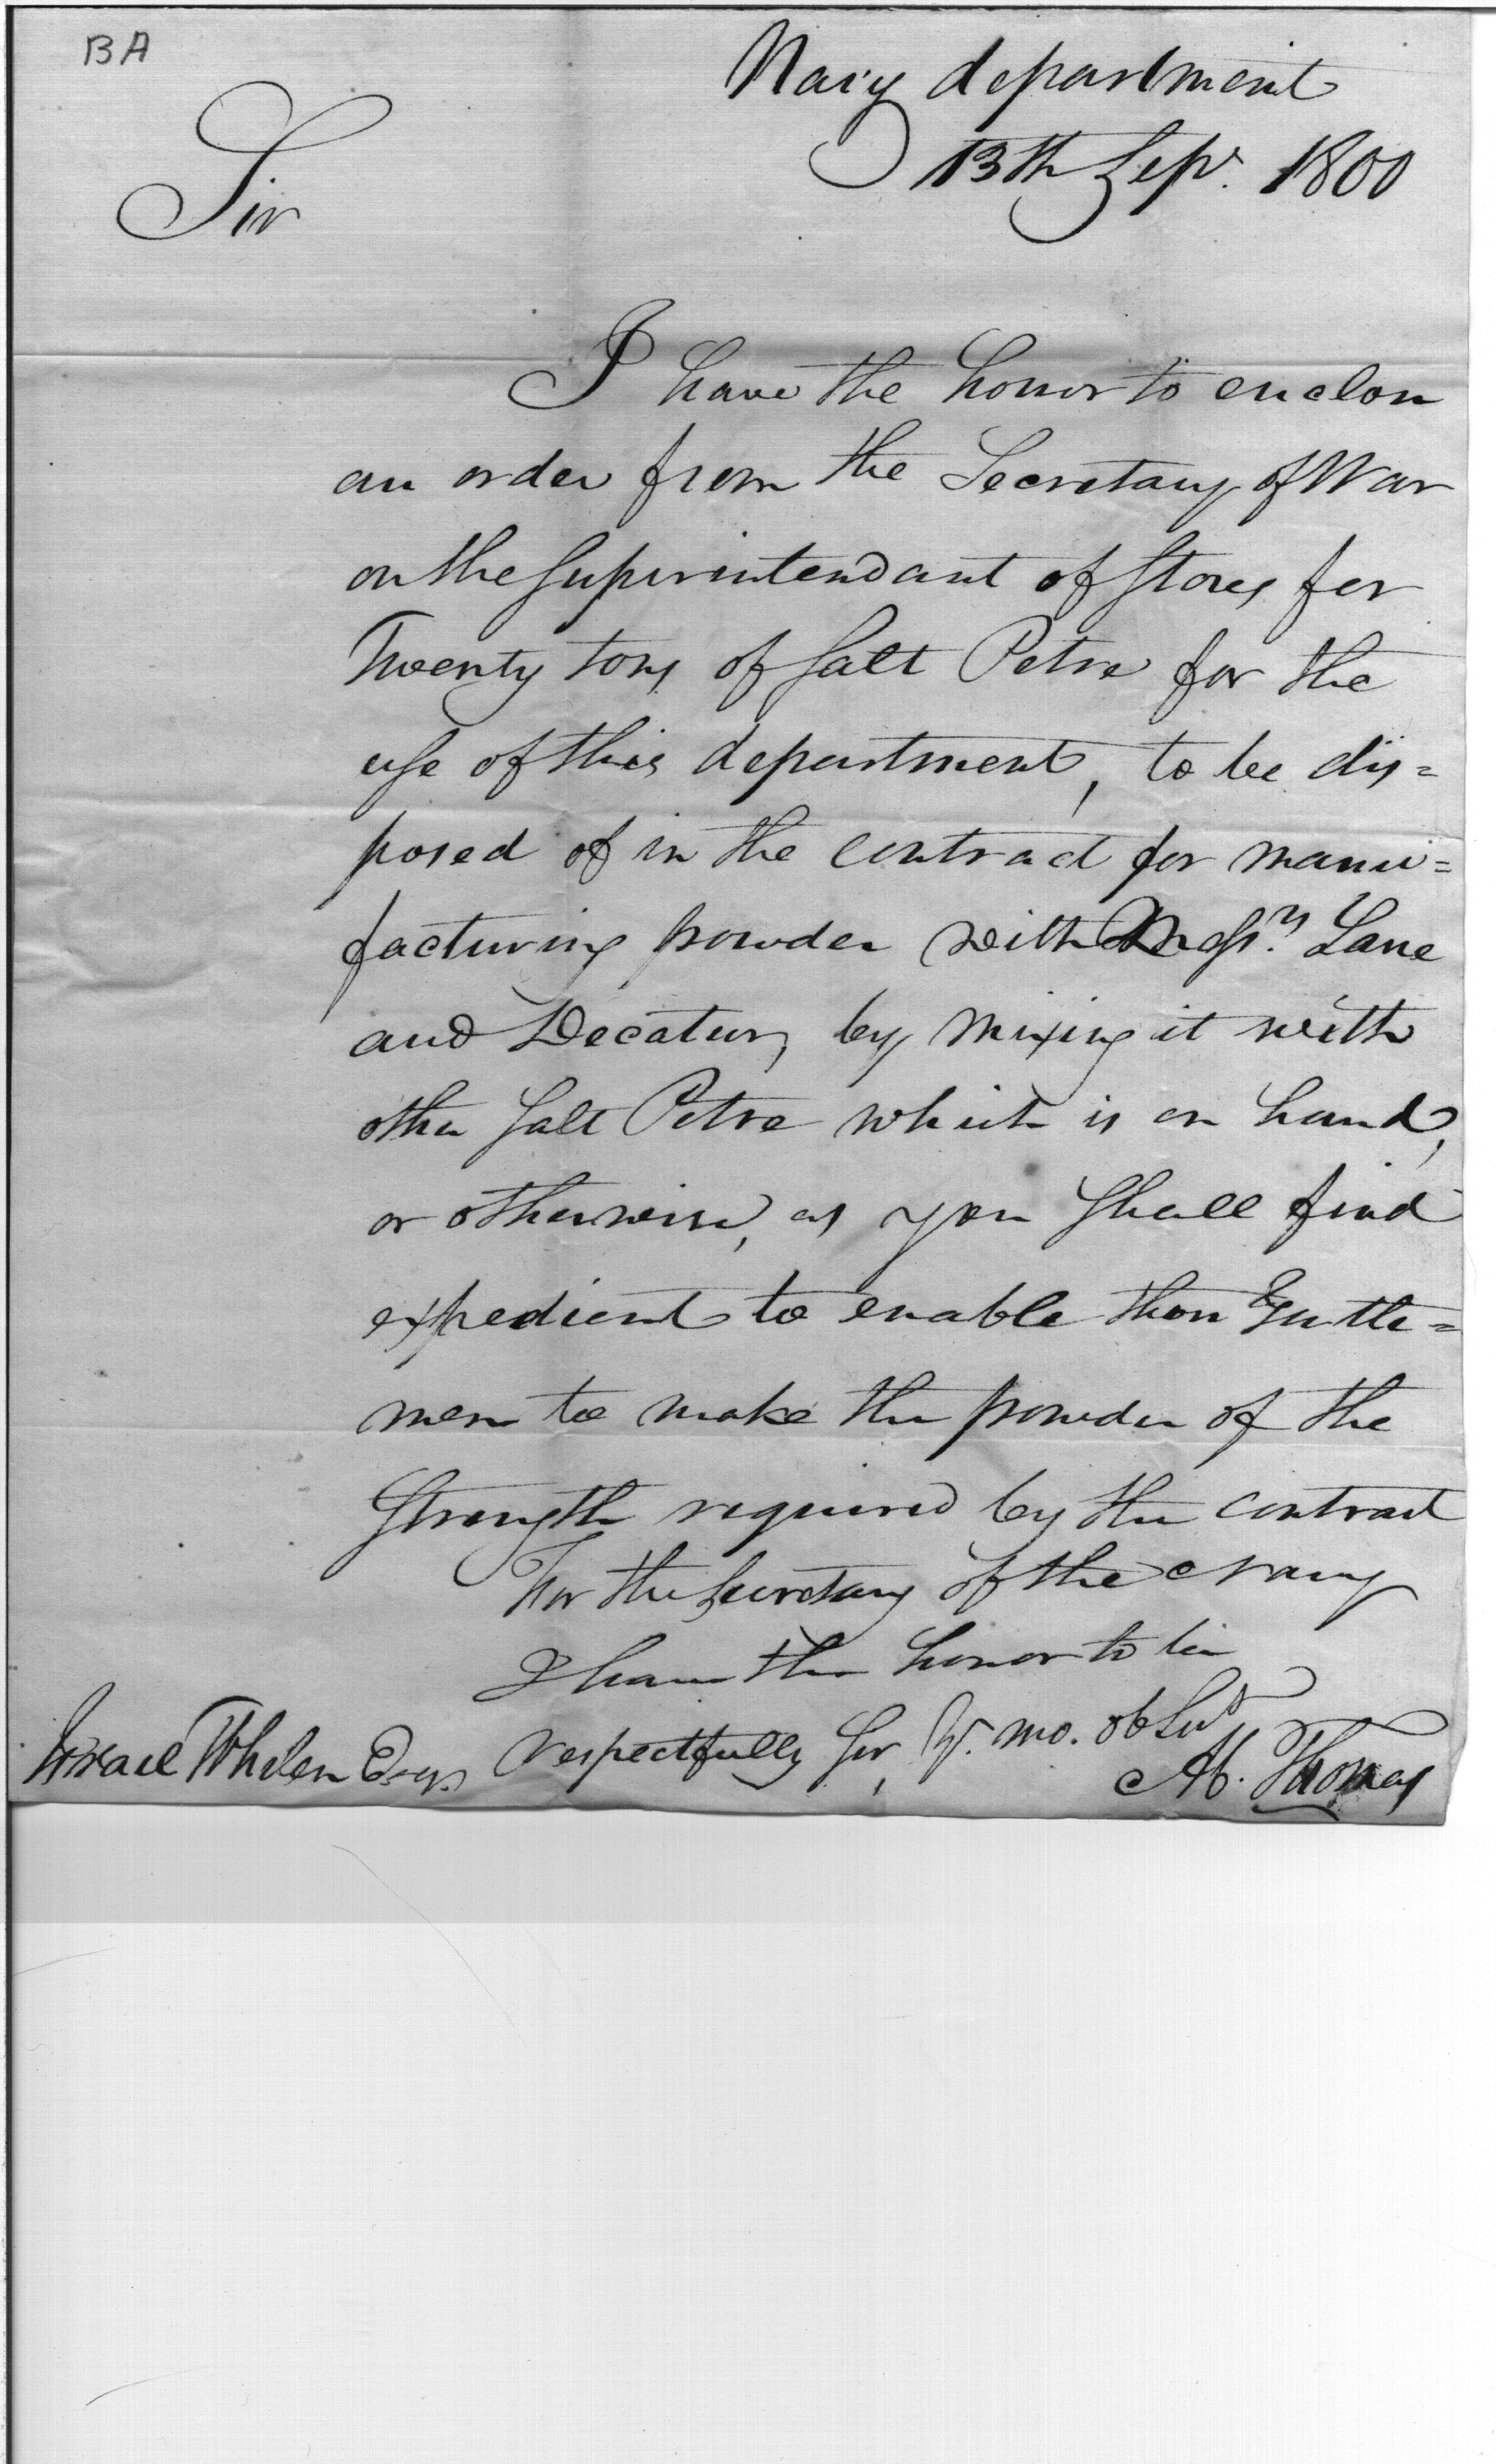 BA
Navy department
13th Sepr. 1800
Sir
I have the honor to enclose
an order from the Secretary of War
on the Superintendant of Stores for
Twenty tons of Salt Petre for the
use of this department, to be dis=
posed of in the contract for manu=
facturing powder with Messrs. Lane
and Decatur, by mixing it with
other Salt Petre which is on hand,
or otherwise, as you shall find
expedient to enable those Gentle=
men to make the powder of the
Strength required by the contract
For the Secretary of the Navy
I have the honor to be
respectfully Sir, Yr. mo. ob Svt
Israel Whelen Esqr.
A. Thomas